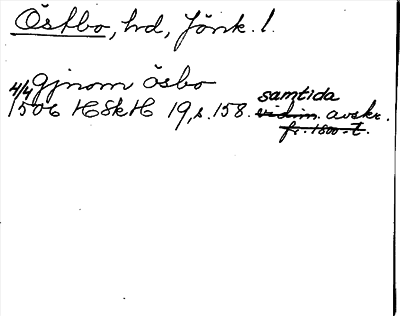 Östbo, hd, Jönk. l.
4/4 gjnom ösbo
samtida
1506 HSkH 19, s. 158. vidim. avskr.
fr. 1800-t.